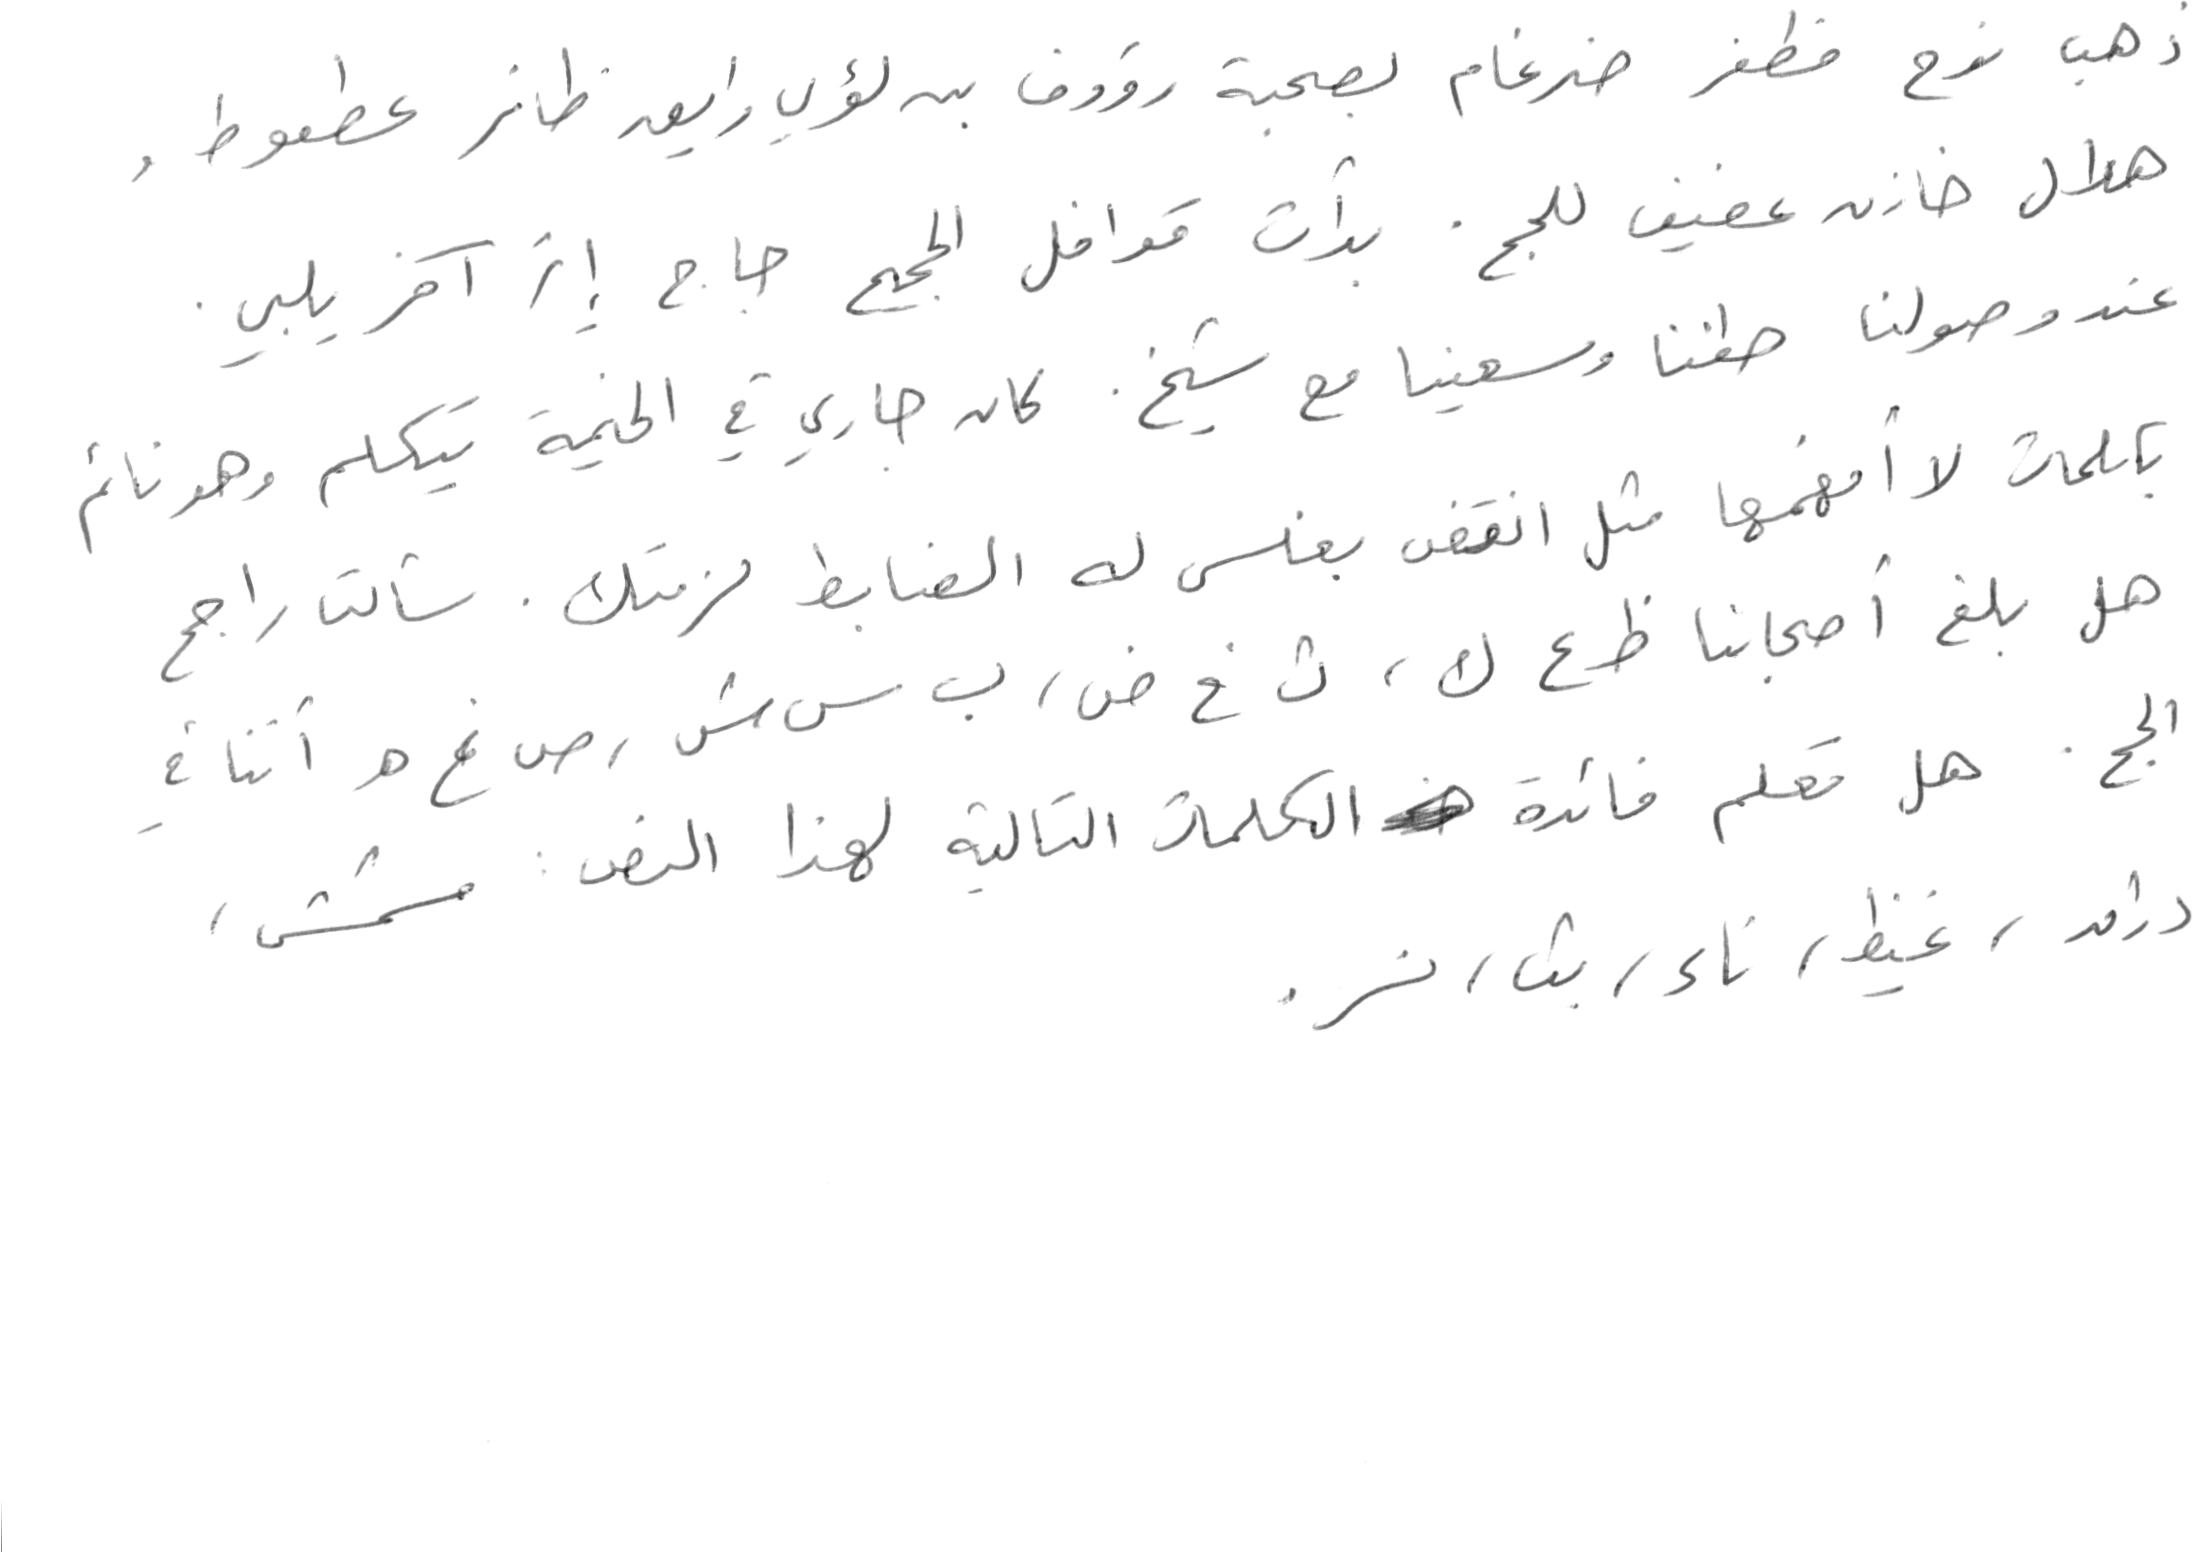 ذهب نوح مظفر ضرغام بصحبة رؤوف بن لؤي رايق ظافر عطعوط و
هلال خازن عفيف للحج . بدأت قوافل الحجيج حاج إثر آخر يلبي .
عند وصولنا طفنا وسعينا مع شيخ . كان جاري في الخيمة يتكلم وهو نائم
بكلمات لا أفهمها مثل انقض بغلس له الضابط نزمتك . سألت راجح
هل بلغ أصحابنا ظ ع ك ، ث خ ض ، ب س ش ، ص غ ه أننا في
الحج . هل تعلم فائدة الكلمات التالية لهذا النص : مشمش ،
دراق ، غيظ ، ناء ، بث ، نسر .